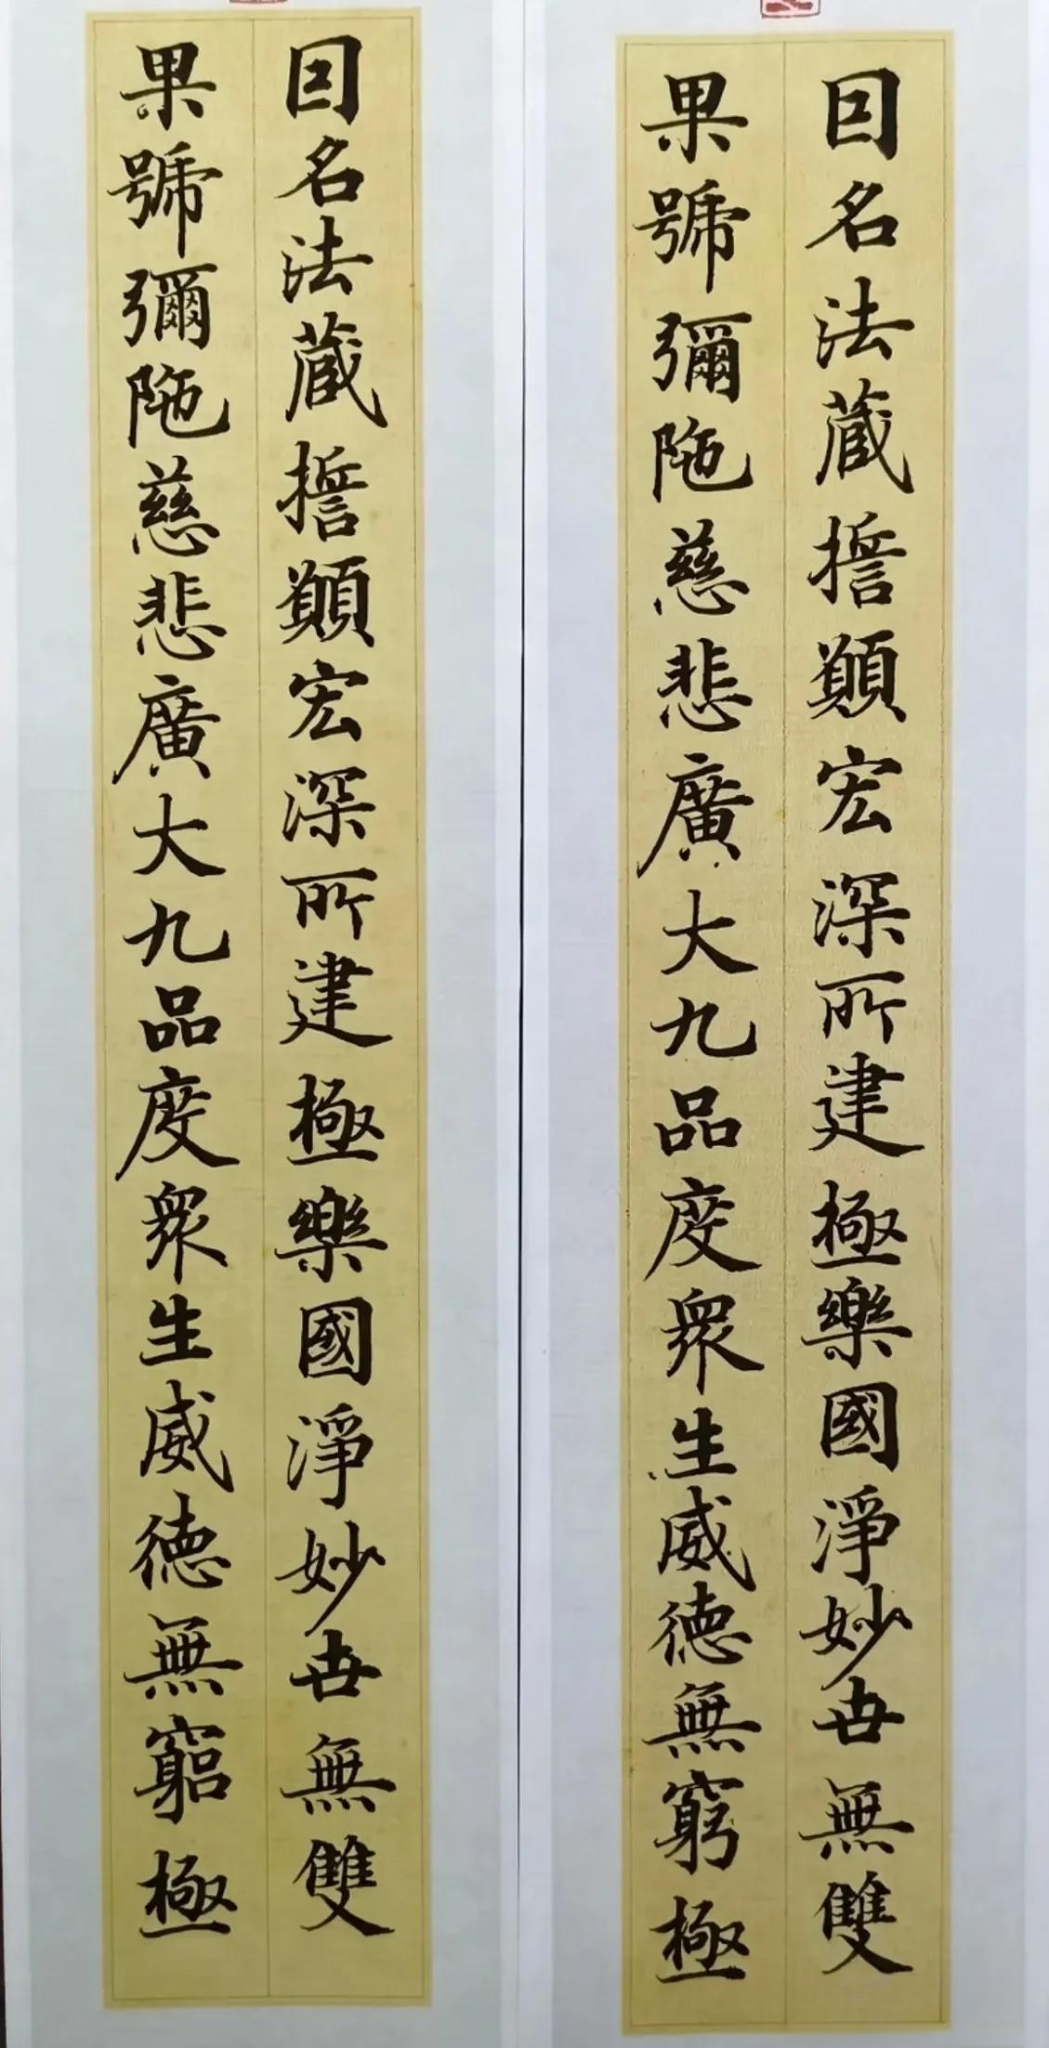 囙名法藏誓願宏深所建極樂國淨妙世無雙
果號彌陁慈悲廣大九品度眾生威徳無窮極
囙名法藏誓願宏深所建極樂國淨妙世無雙
果號彌陁慈悲廣大九品度眾生威徳無竆極